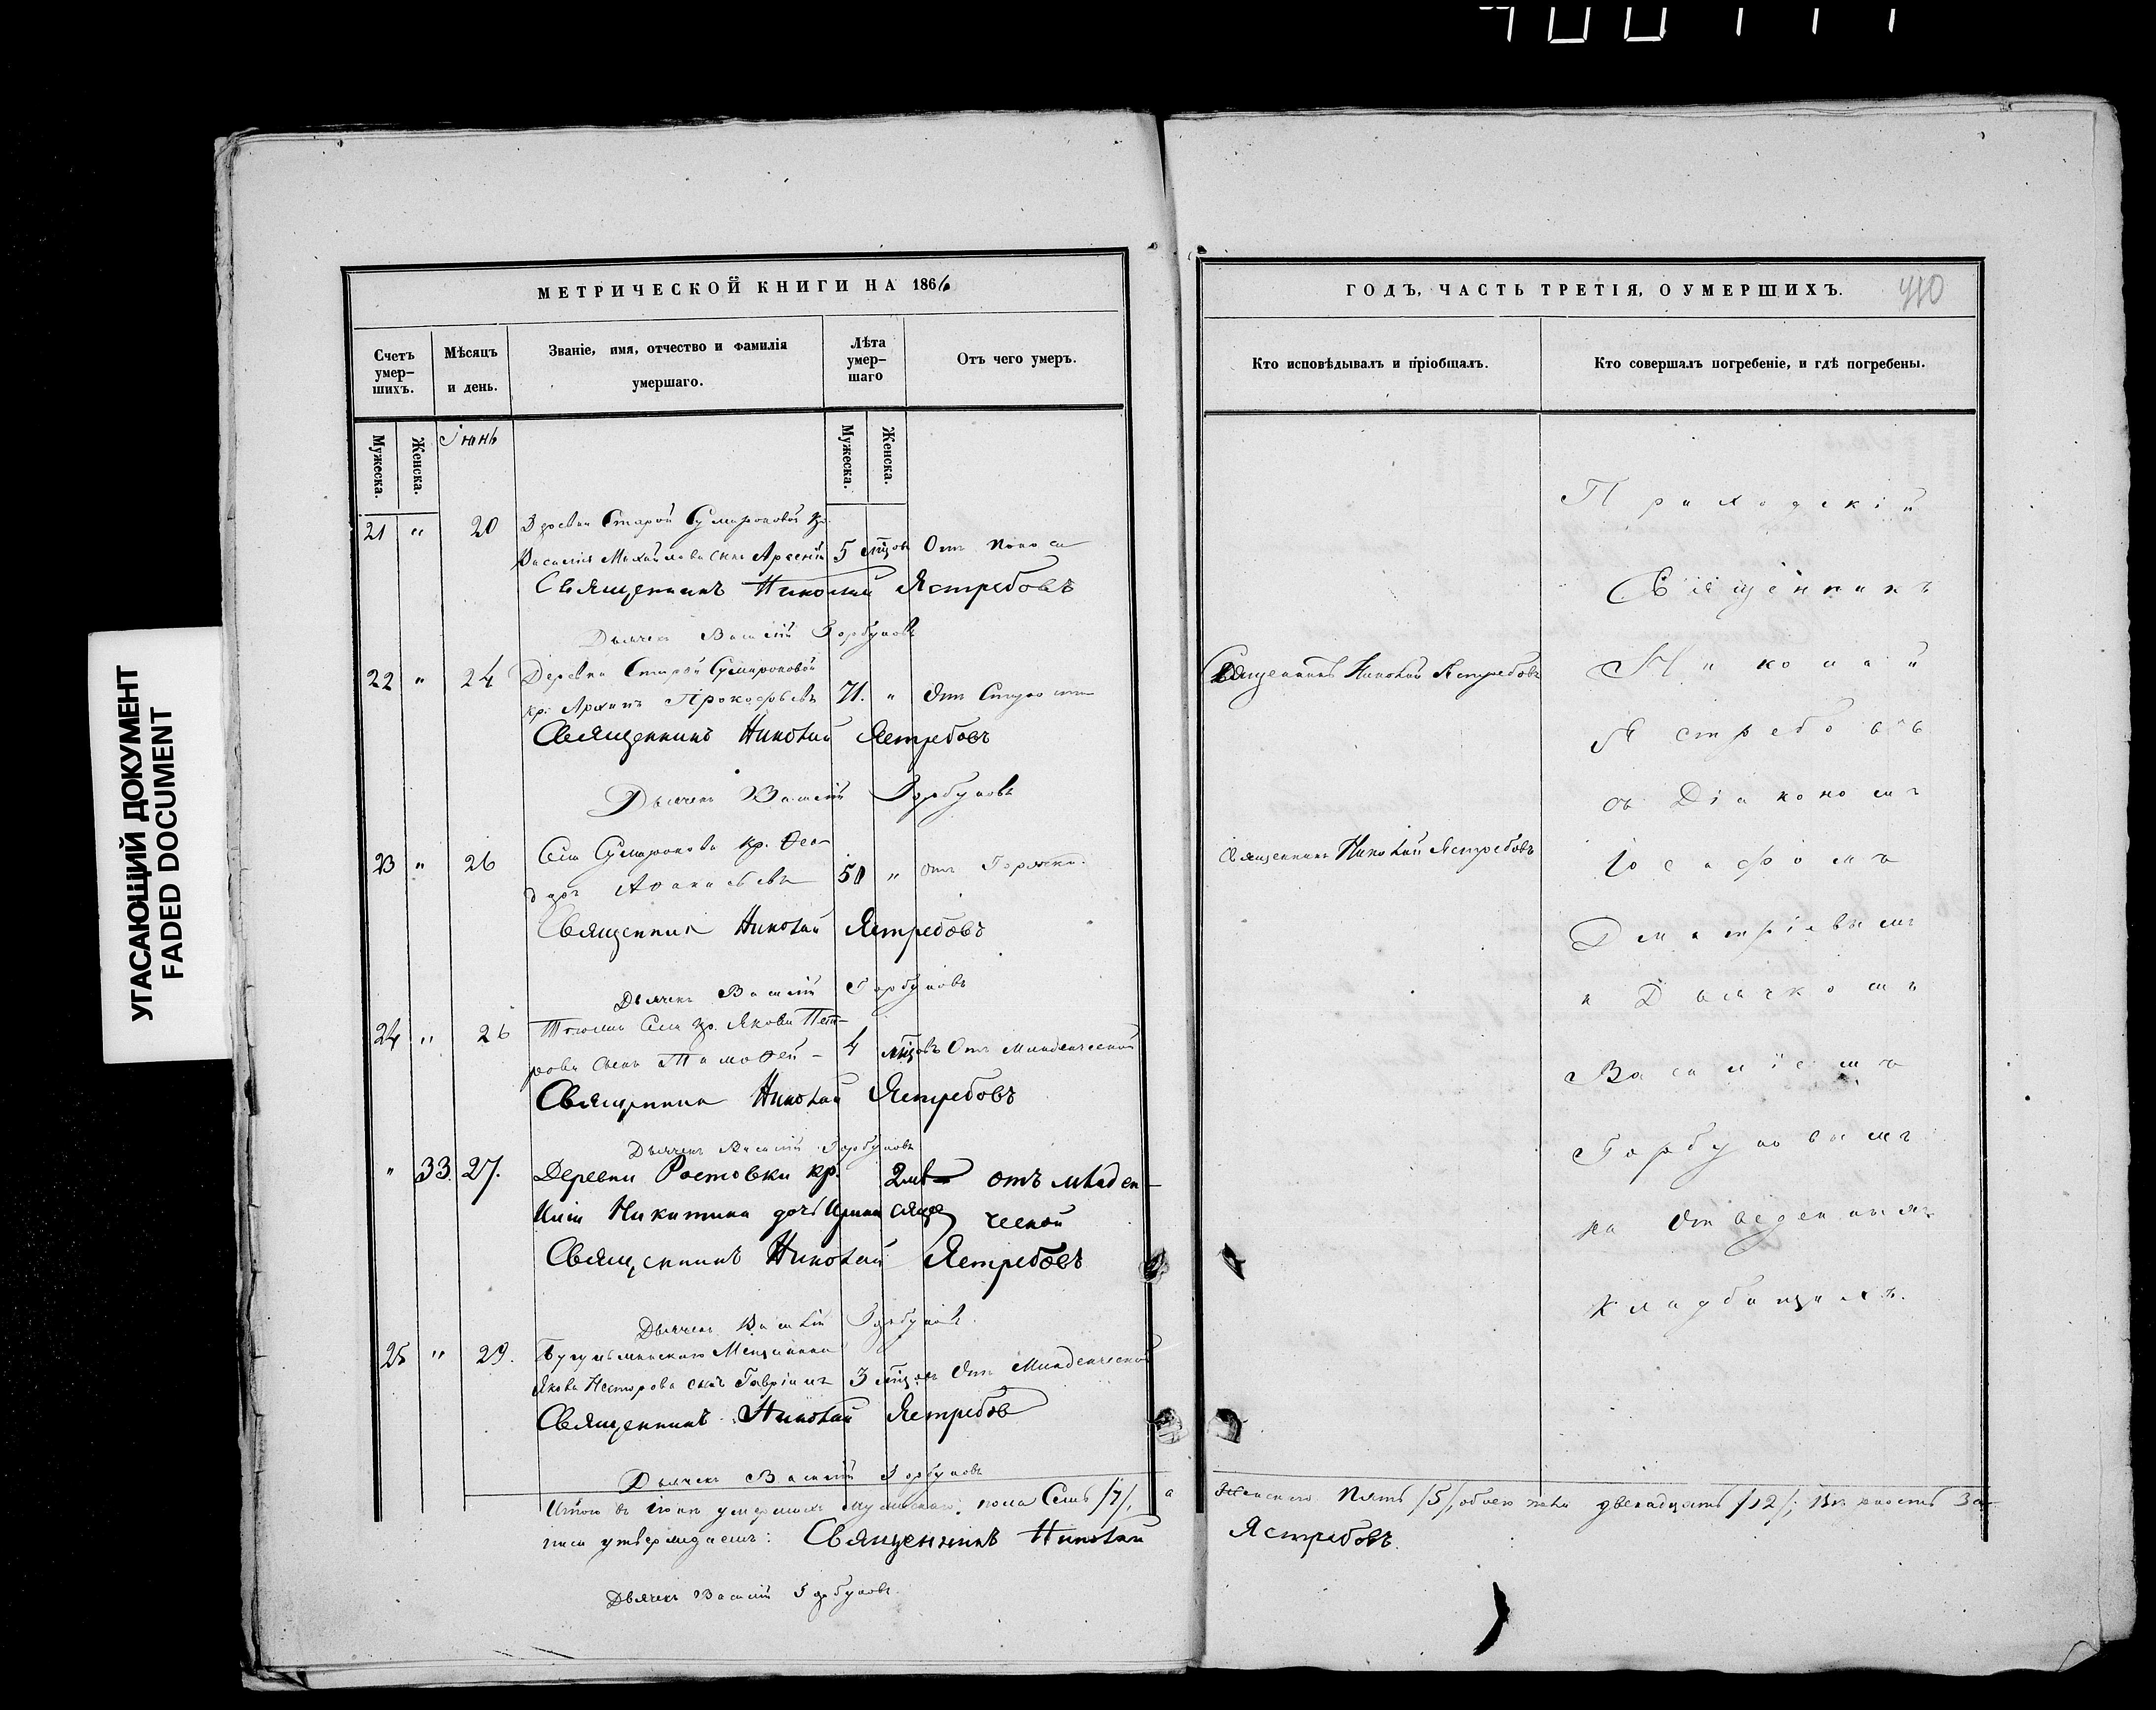 УГАСАЮЩИЙ ДОКУМЕНТ
FADED DOCUMENT
МЕТРИЧЕСКОЙ КНИГИ НА 1861
Счетъ умер-
шихъ.
Мѣсяцъ
и день.
Званіе, имя, отчество и фамилія
умершаго.
Лѣта
умер-
шаго
Отъ чего умеръ.
Мужеска.
Женска.
Іюнь
Мужеска.
Женска.
21 " 20 Деревни Старой Сумароковой кр.
Василія Михайлова сынъ Арсеній 5 мцовъ Отъ поноса
Священникъ Николай Ястребовъ
Дьячекъ Василій Горбуновъ
22 " 24 Деревни Старой Сумароковой
кр. Архипъ Прокофьевъ 71. " Отъ Старости
Священникъ Николай Ястребовъ
Дьячекъ Василій Горбуновъ
23 " 26 Села Сумарокова кр. Ѳео-
доръ Аѳанасьевъ 50 " отъ Горячки.
Священник Николай Ястребовъ
Дьячекъ Василій Горбуновъ
24 " 26 Тогоже Села кр. Якова Пет-
рова сынъ Тимоѳей - 4 мцовъ Отъ Младенческой
Священника Николай Ястребовъ
Дьячекъ Василій Горбуновъ
" 33. 27. Деревни Ростовки кр. 2 отъ младен-
Никитина дочь Ирина сяца ческой
Священникъ Николай Ястребовъ
Дьячекъ Василій Горбуновъ.
25 " 29. Бугульминскаго Мещанина
Якова Несторова сынъ Гавріилъ 3 мцовъ Отъ Младенческой
Священникъ Николай Ястребовъ
Дьячекъ Василій Горбуновъ
Итого въ Іюнѣ умершихъ мужескаго пола Семь /7/, а
писи утверждаемъ: Священникъ Николай
Дьячекъ Василій Горбуновъ.
ГОДЪ, ЧАСТЬ ТРЕТІЯ, О УМЕРШИХЪ.
410
Кто исповѣдывалъ и пріобщалъ.
Кто совершалъ погребеніе, и гдѣ погребены.
Священникъ Николай Ястребовъ
Священникъ Николай Ястребовъ
Приходскій
Священникъ
Николай
Ястребовъ
съ Діакономъ
Іосафомъ
Дмитріевымъ
и Дьячкомъ
Василіемъ
Горбуновымъ
на Отведенныхъ
Кладбищахъ.
женскаго Пять /5/, обоего пола двенадцать /12/; Вѣрность За-
Ястребовъ